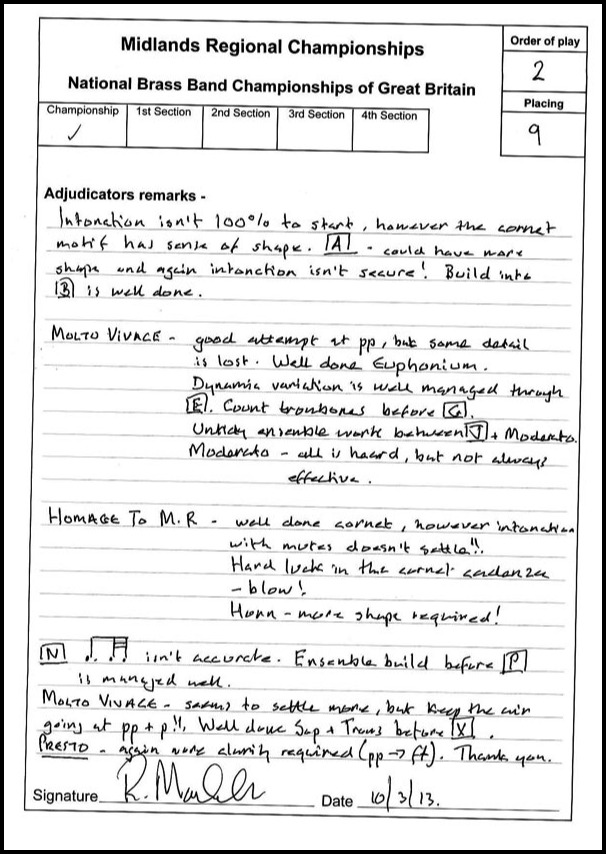 Midlands Regional Championships
National Brass Band Championships of Great Britain
Order of play
2
Placing
9
Championship 1st Section 2nd Section 3rd Section 4th Section
✓
Adjudicators remarks -
Intonation isn't 100% to start, however the cornet
motif has sense of shape. A - could have more
shape and again intonation isn't secure! Build into
B is well done.
MOLTO VIVACE - good attempt at pp, but some detail
is lost. Well done Euphonium.
Dynamic variation is well managed through
E. Count trombones before G.
Untidy ensemble work between J + Moderato.
Moderato - all is heard, but not always
effective.
HOMAGE TO M.R - well done cornet, however intonation
with mutes doesn't settle!!
Hard luck in the cornet cadenza
- blow!
Horn - more shape required!
N ♩ ♫ isn't accurate. Ensemble build before P
is managed well.
MOLTO VIVACE - seems to settle more, but keep the air
going at pp + p!!, Well done Sop + Trans before X.
PRESTO - again more clarity required (pp → ff). Thank you.
Signature
Date 10/3/13.